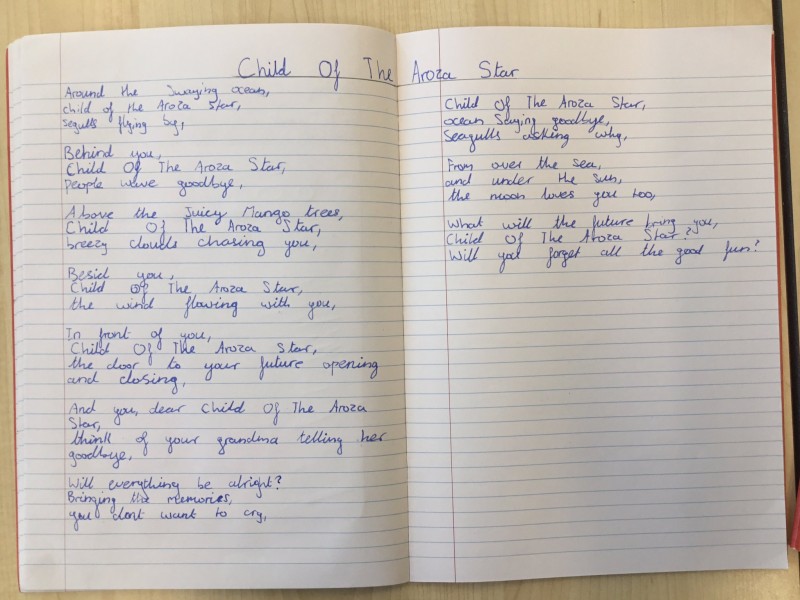 Child Of The Aroza Star
Around the Swaying ocean,
child of the Aroza Star,
segulls flying by,
Behind you,
Child Of The Aroza Star,
people wave goodbye,
Above the Juicy Mango trees,
Child Of The Aroza Star,
breezy clouds chasing you,
Besid you,
Child Of The Aroza Star,
the wind flowing with you,
In front of you,
Child Of The Aroza Star,
the door to your future opening
and closing,
And you, dear Child Of The Aroza
Star,
think of your grandma telling her
goodbye,
Will everything be alright?
Bringing the memories,
you dont want to cry,
Child Of The Aroza Star,
ocean Saying goodbye,
Seagulls asking why,
From over the sea,
and under the sun,
the moon loves you too,
What will the future bring you,
Child Of The Aroza Star?
Will you forget all the good fun?